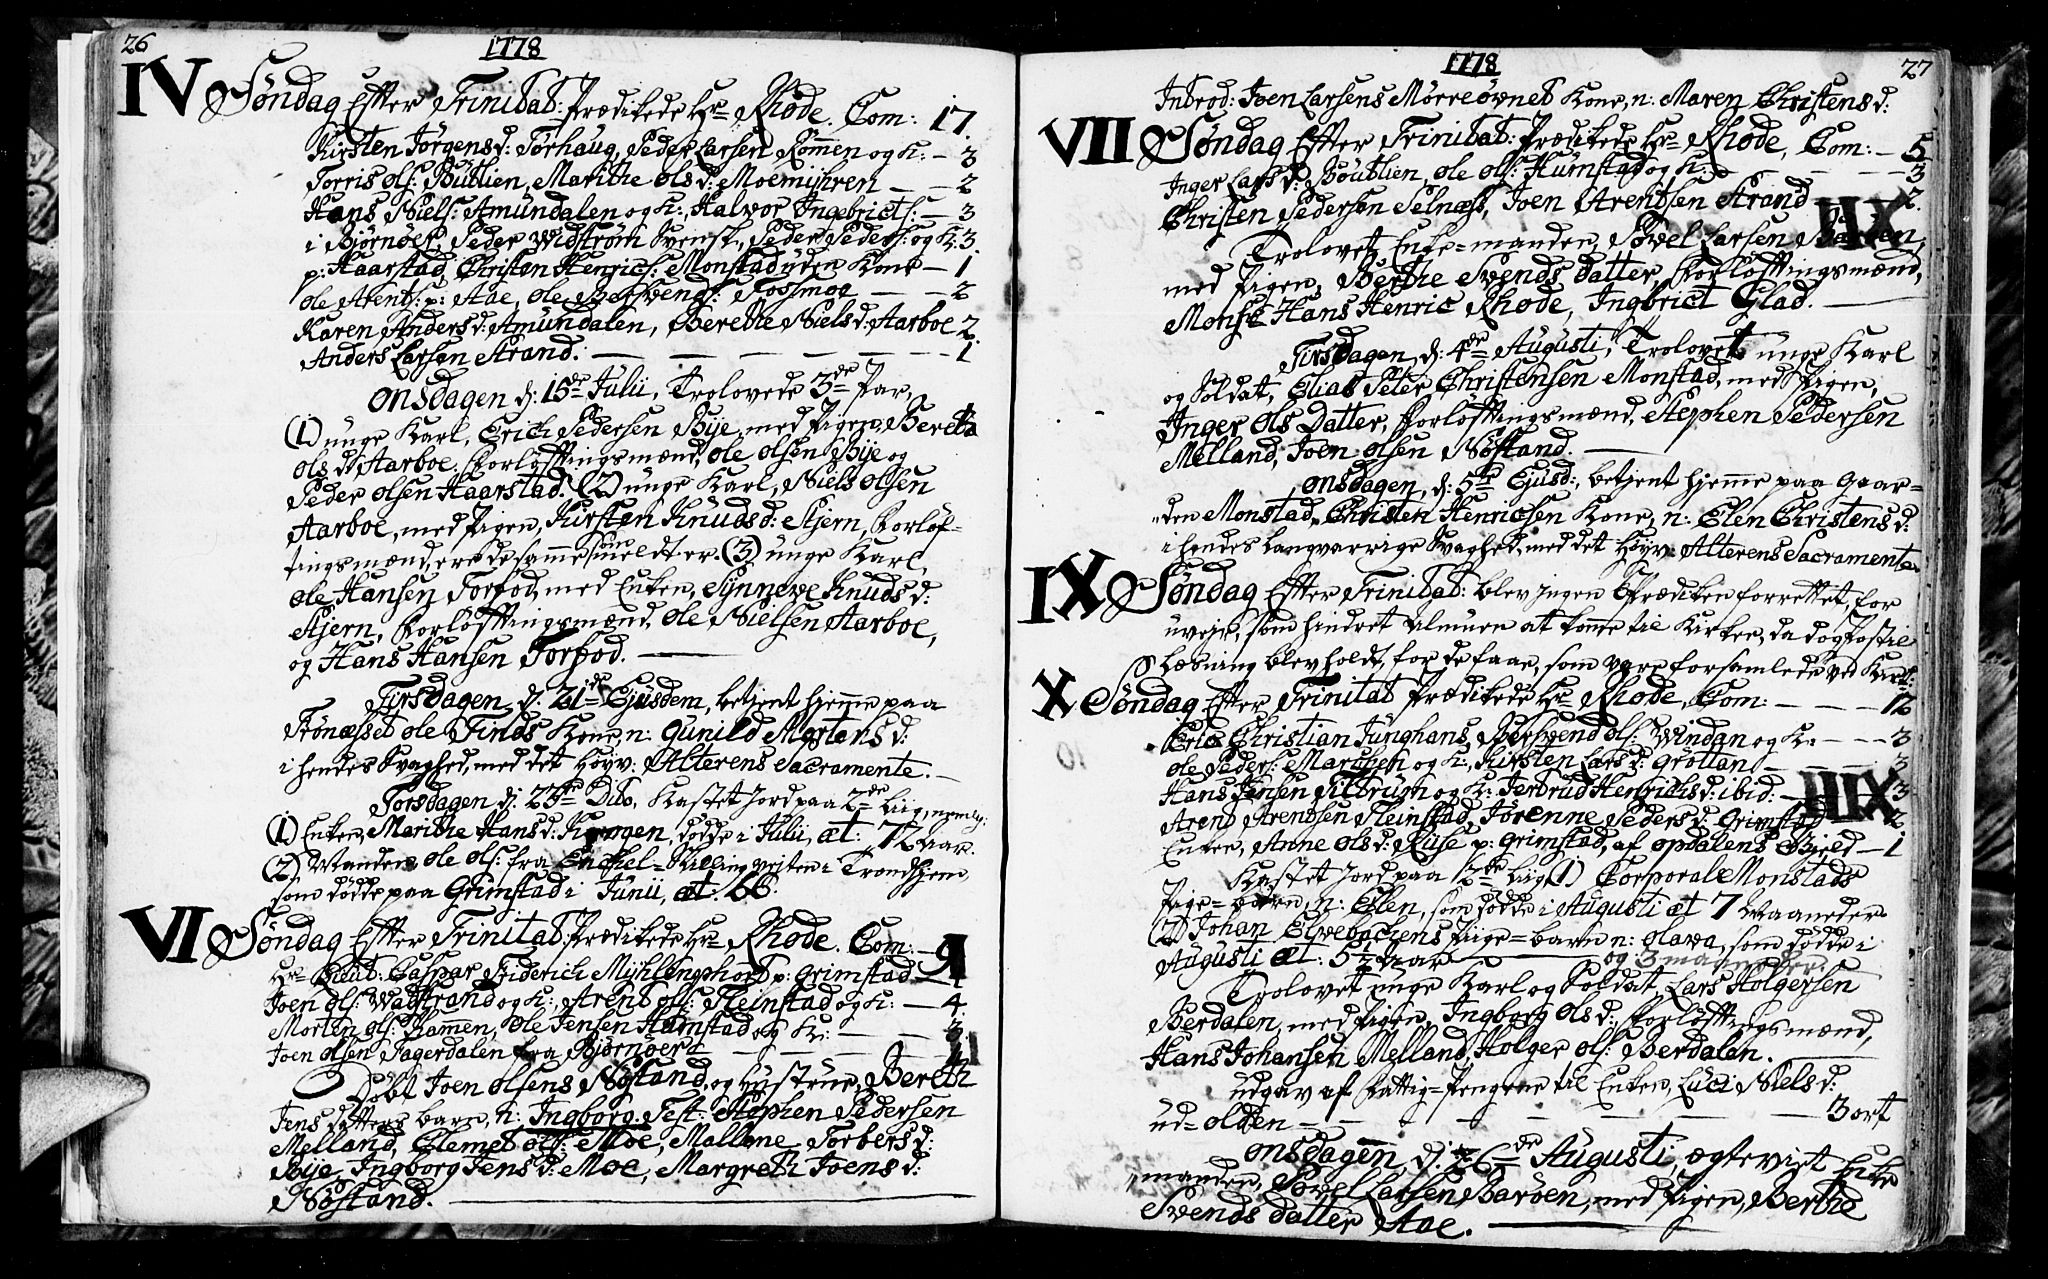 26
1778
IV Søndag Effter Trinitat: Prædikede Hr Rhode. Com: 17.
Kirsten Jørgensd: Torhaug, Peder Larsen Rømen og K: – 3
Torris Ols: Bütlien, Marithe Olsd: Moemyhren – – 2
Hans Niels: Amündalen og K:, Halvor Ingebricts: – 3
i Bjørnøer, Peder Widstrøm Svensk, Peder Peders: og K: 3.
p: Haarstad, Christen Henrics: Monstad uden Kone – 1
Ole Arents: p: Aae, Ole Bersvends: Fossmoe – – 2
Karen Andersd: Amündalen, Berethe Nielsd: Aarboe 2
Anders Larsen Strand. – – – – – – 1
Onsdagen d: 15de Julii, Trolovede 3de Par,
(1) unge Karl, Erich Pedersen Bÿe, med Pigen, Bereth
Olsd: Aarboe. Forløfftingsmænd, Ole Olsen Bÿe og
Peder Olsen Haarstad. (2) unge Karl, Niels Olsen
Aarboe, med Pigen, Kirsten Knudsd: Stjern, Forløf-
tingsmænd, ere de samme som meldt er. (3) unge Karl,
Ole Hansen Torfod, med Enken, Synneve Knudsd:
Stjern, Forløfftingsmænd, Ole Nielsen Aarboe,
og Hans Hansen Torfod.
Tirsdagen, d: 21de Ejusdem, betjent hjemme paa
Trönæsset Ole Finds Kone, n: Gunild Mortensd:
i hendes Svaghed, med det Høyv: Alterens Sacramente.
Torsdagen d: 23de Dito, Kastet Jord paa 2de Liig, nemlig:
(1) Enken, Marithe Hansd: dødde i Julii, æt: 72 Aar.
(2) Manden, Ole Ols: fra Enckel-Skillingveiten i Trondhjem,
som dødde paa Grimstad i Junii, æt: 66.
VI Søndag Effter Trinitat: Prædikede Hr Rhode. Com: – 9
Hr Lieut: Caspar Friderich Mühlenphort p: Grimstad – 1
Joen Ols: Wadstrand og K:, Arent Ols: Fleinstad og K: – 4.
Morten Ols: Hammen, Ole Jensen Humstad og K: – – 3
Joen Olsen Fagerdalen fra Bjørnøer – – – – 1
Døbt Joen Olsens Nøstand, og Hustrue, Bereth
Jens datters barn, n: Ingborg. Test: Stephen Pedersen
Melland, Clemet Ols: Moe, Mallene Torbersd:
Bÿe, Ingborg Jensd: Moe, Margrethe Joensd:
Nøstand.
1778
27
Introd: Joen Larsens Mørreøvnet Kone, n: Maren Christensd:
VII Søndag Effter Trinitat: Prædikede Hr Rhode, Com: – 5
Inger Larsd: Böutlien, Ole Ols: Humstad og K: – – – 3
Christen Pedersen Selnæss, Joen Arentsen Strand – 2.
Trolovet Enke-manden, Povel Larsen Barøen,
med Pigen, Berthe Svends datter, Forløfftingsmænd,
Monsr Hans Henric Rhode, Ingbrict Glad.
Tirsdagen, d: 4de Augusti, Trolovet unge Karl
og Soldat, Elias Peter Christensen Monstad, med Pigen,
Inger Ols Datter, Forløfftingsmænd, Stephen Pedersen
Melland, Joen Olsen Nøstand.
Onsdagen, d: 5te Ejusd:, betjent hjemme paa Gaar-
den Monstad, Christen Henricsen Kone, n: Elen Christensd:
i hendes langvarrige Svaghed, med det Høyv: Alterens Sacramente.
IX Søndag Effter Trinitat: blev ingen Prædiken forrettet, for
uveir, som hindret Almuen at komme til Kirken, da dog Postil
Læsning blev holdt, for de faae, som vare forsamlede ved Kirk:
X Søndag Effter Trinitat Prædikede Hr Rhode, Com: – – – 12
Eric Christian Junghans, Bersvend Ols: Windan og K: – – 3
Ole Peders: Marthen og K:, Kirsten Larsd: Grøttan – – 3
Hans Jensen Titbrugn og K: Jertrud Henrichsd: ibid: – 3
Arent Arentsen Fleinstad, Jørenne Pedersd: Grimstad – 2
Enken, Anne Olsd: Riise p: Grimstad, af Opdalens Gield – 1
Kastet Jord paa 2de Liig (1) Corporal Monstads
Pige-barn, n: Elen, som dødde i Augusti æt 7 Maaneder
(2) Johan Elvebackens Piige-barn n: Olava, som dødde i
Augusti æt: 5 1/2 Aar og 3 maaneder.
Trolovet unge Karl og Soldat, Lars Holgersen
Berdalen, med Pigen, Ingborg Olsd: Forløfftingsmænd,
Hans Johansen Melland, Holger Ols: Berdalen.
udgav af Fattig-Pengene til Enken, Luci Nielsd:
ud-Olden – – – – – 3 ort
Onsdagen d: 26de Augusti, ægteviet Enke
manden, Povel Larsen Barøen, med Pigen, Berthe
Svends datter Aae.